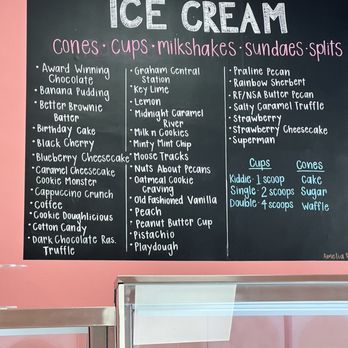 ICE CREAM
cones · cups · milkshakes · sundaes · splits
· Award Winning
Chocolate
· Banana Pudding
· Better Brownie
Batter
· Birthday Cake
· Black Cherry
· Blueberry Cheesecake
· Caramel Cheesecake
· Cookie Monster
· Cappuccino Crunch
· Coffee
· Cookie Doughlicious
· Cotton Candy
· Dark Chocolate Ras.
Truffle
· Graham Central
Station
· Key Lime
· Lemon
· Midnight Caramel
River
· Milk n Cookies
· Minty Mint Chip
· Moose Tracks
· Nuts About Pecans
· Oatmeal Cookie
Craving
· Old Fashioned Vanilla
· Peach
· Peanut Butter Cup
· Pistachio
· Playdough
· Praline Pecan
· Rainbow Sherbert
· RF/NSA Butter Pecan
· Salty Caramel Truffle
· Strawberry
· Strawberry Cheesecake
· Superman
Cups
Kiddie · 1 scoop
Single · 2 scoops
Double · 4 scoops
Cones
Cake
Sugar
Waffle
Amelia